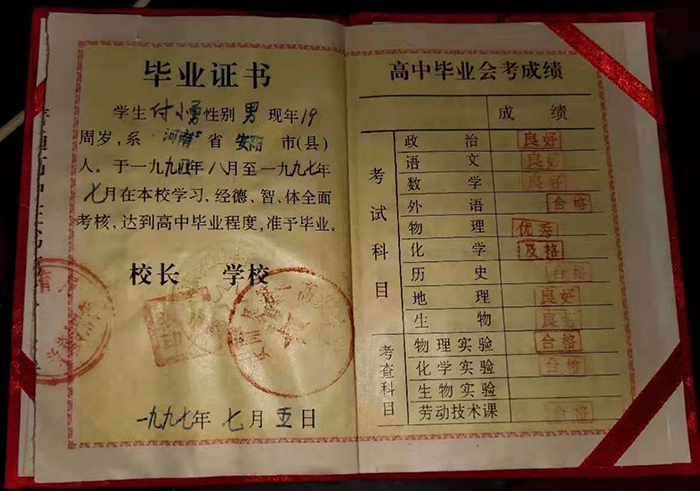 毕业证书
学生付小勇性别男现年19
周岁,系河南省安阳市(县)
人。于一九九四年八月至一九九七年
七月在本校学习、经德、智、体全面
考核,达到高中毕业程度,准予毕业。
校长 学校
一九九七年七月五日
高中毕业会考成绩
成绩
考试科目
政治 良好
语文 良好
数学 良好
外语 合格
物理 优秀
化学 及格
历史 合格
地理 良好
生物 良好
考查科目
物理实验 合格
化学实验 合格
生物实验
劳动技术课 合格